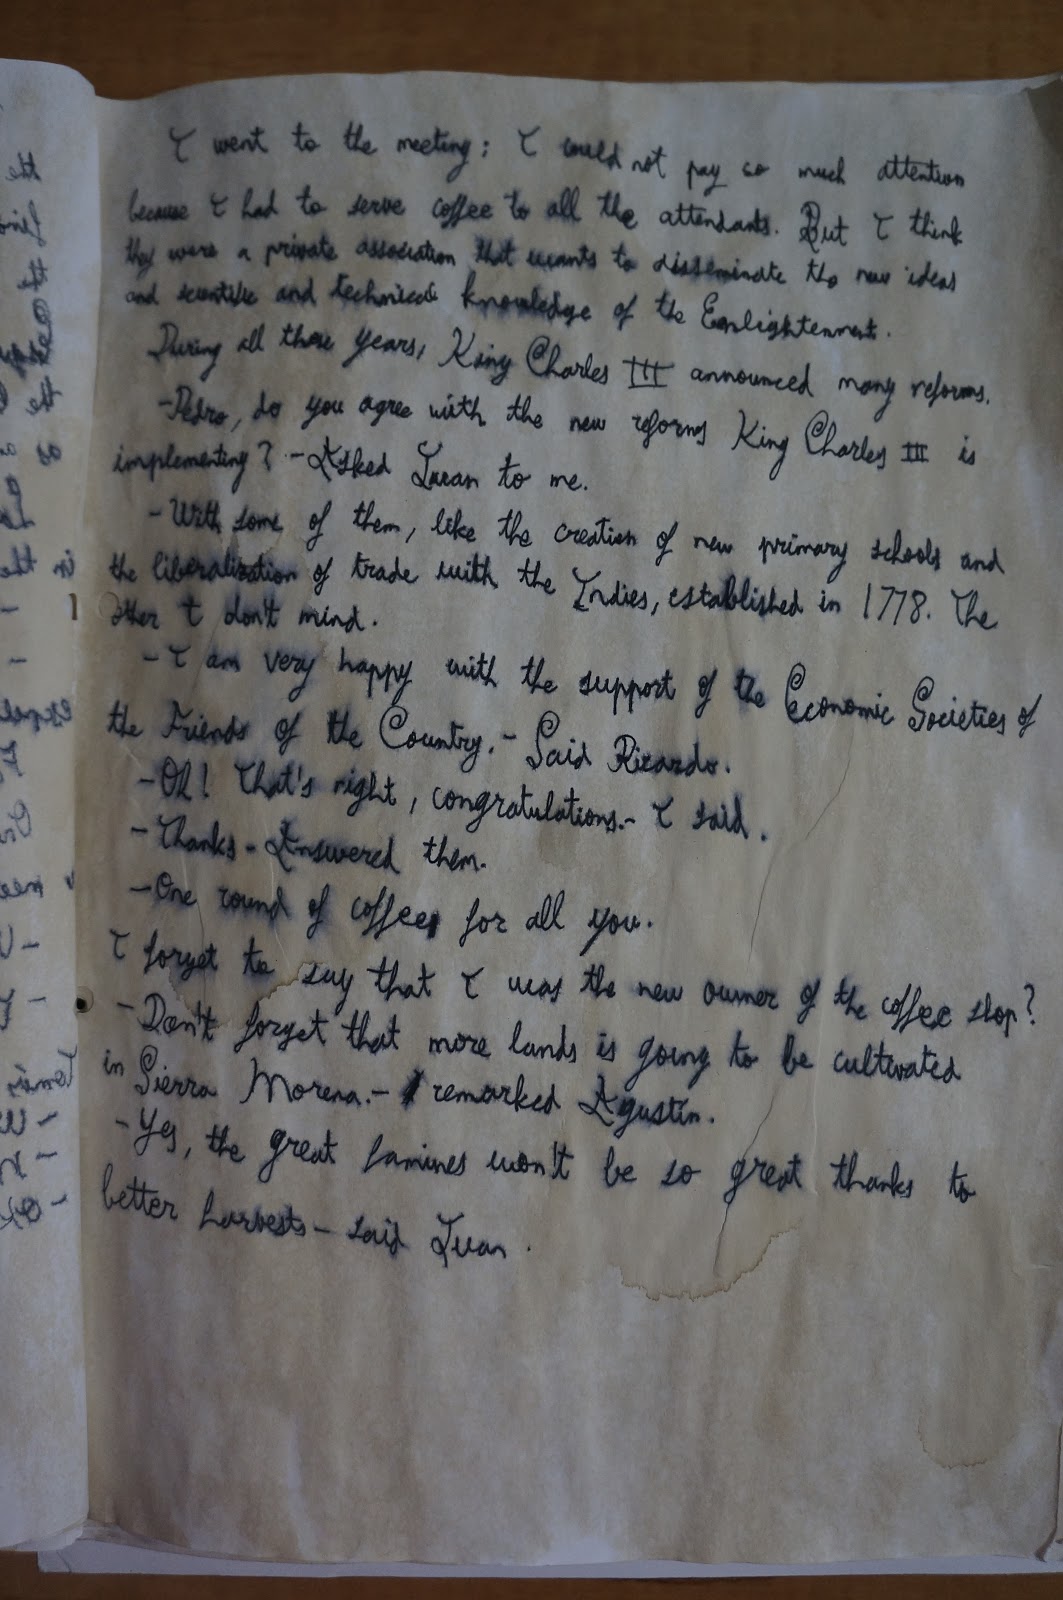 I went to the meeting; I could not pay so much attention
because I had to serve coffee to all the attendants. But I think
they were a private association that wants to disseminate the new ideas
and scientific and technical knowledge of the Eenlightenment.
During all those years, King Charles III announced many reforms.
-Pedro, do you agree with the new reforms King Charles III is
implementing? -Asked Juan to me.
-With some of them, like the creation of new primary schools and
the liberalization of trade with the Indies, established in 1778. The
other I don't mind.
-I am very happy with the support of the Economic Societies of
the Friends of the Country.- Said Ricardo.
-Oh! That's right, congratulations.- I said.
-Thanks- Answered them.
-One round of coffee for all you.
I forget to say that I was the new owner of the coffee shop?
-Don't forget that more lands is going to be cultivated
in Sierra Morena.- remarked Agustín.
-Yes, the great famines won't be so great thanks to
better harvests- said Juan.